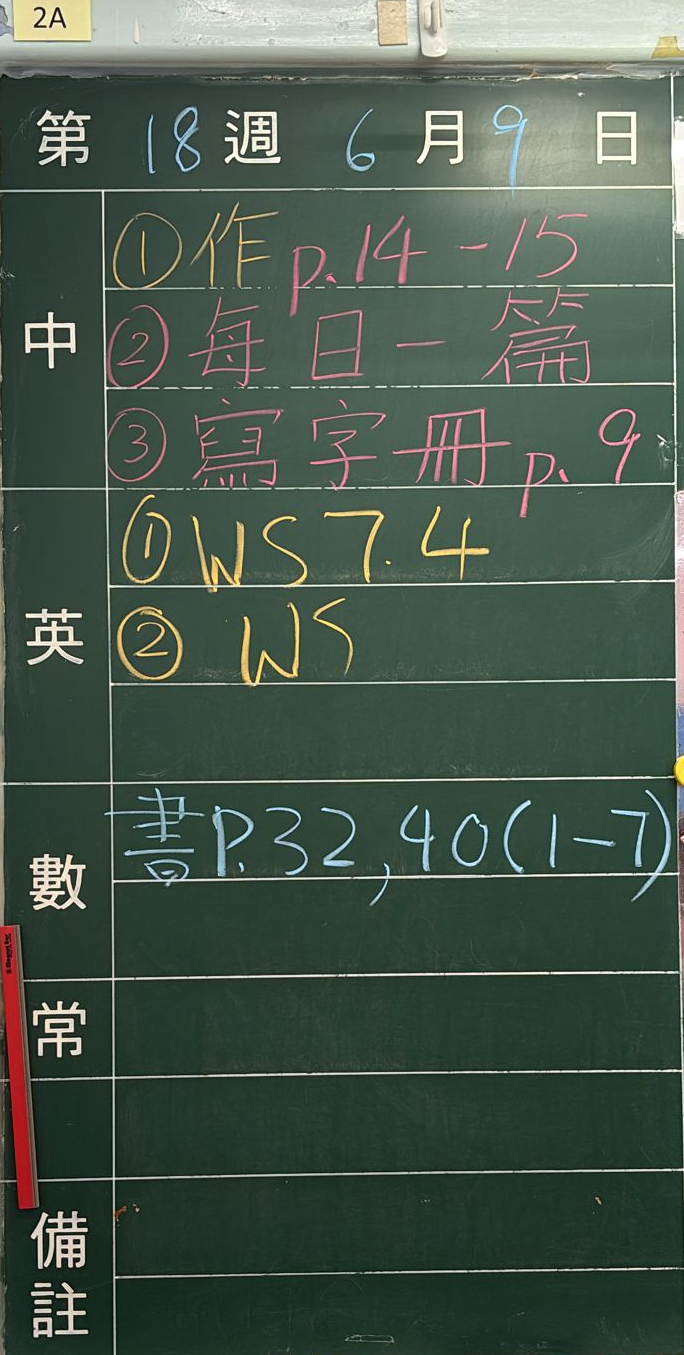 2A
第 18 週 6 月 9 日
中
①作 p.14-15
②每日一篇
③寫字冊 p.9
英
①WS 7.4
② WS
數
書P.32,40(1-7)
常
備註